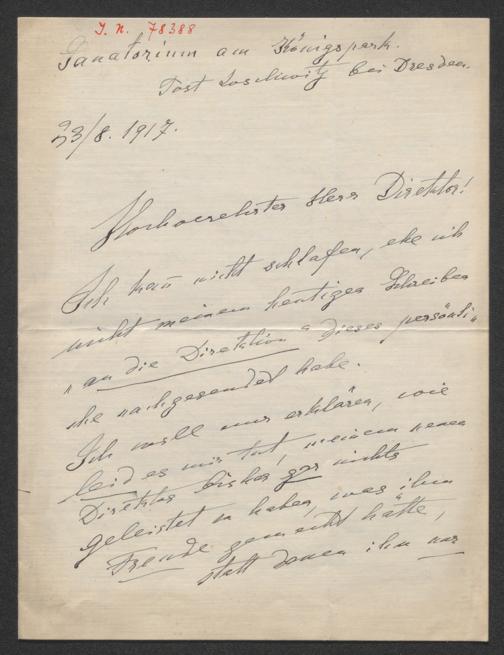 I. N. 78388
Sanatorium am Königspark.
Post Loschwitz bei Dresden.
23/8. 1917.
Hochverehrter Herr Direktor!
Ich kann nicht schlafen, ehe ich
nicht meinem heutigen Schreiben
"an die Direktion" dieses persönli-
che nachgesendet habe.
Ich will nur erklären, wie
leid es mir tut, meinem neuen
Direktor bisher gar nichts
geleistet zu haben, was ihm
Freude gemacht hätte,
statt dessen ihm nur